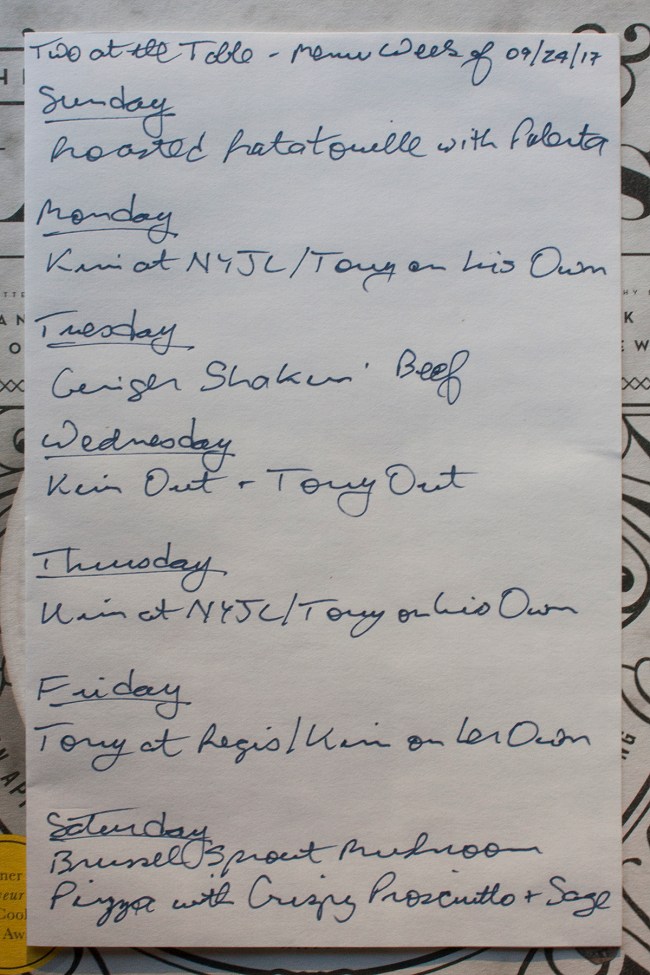 Two at the Table - Menu Week of 09/24/17
Sunday
Roasted Ratatouille with Polenta
Monday
Kim at NYJL/Tony on his Own
Tuesday
Ginger Shakin' Beef
Wednesday
Kim Out - Tony Out
Thursday
Kim at NYJL/Tony on his Own
Friday
Tony at Regis/Kim on her Own
Saturday
Brussel Sprout Mushroom
Pizza with Crispy Prosciutto + Sage